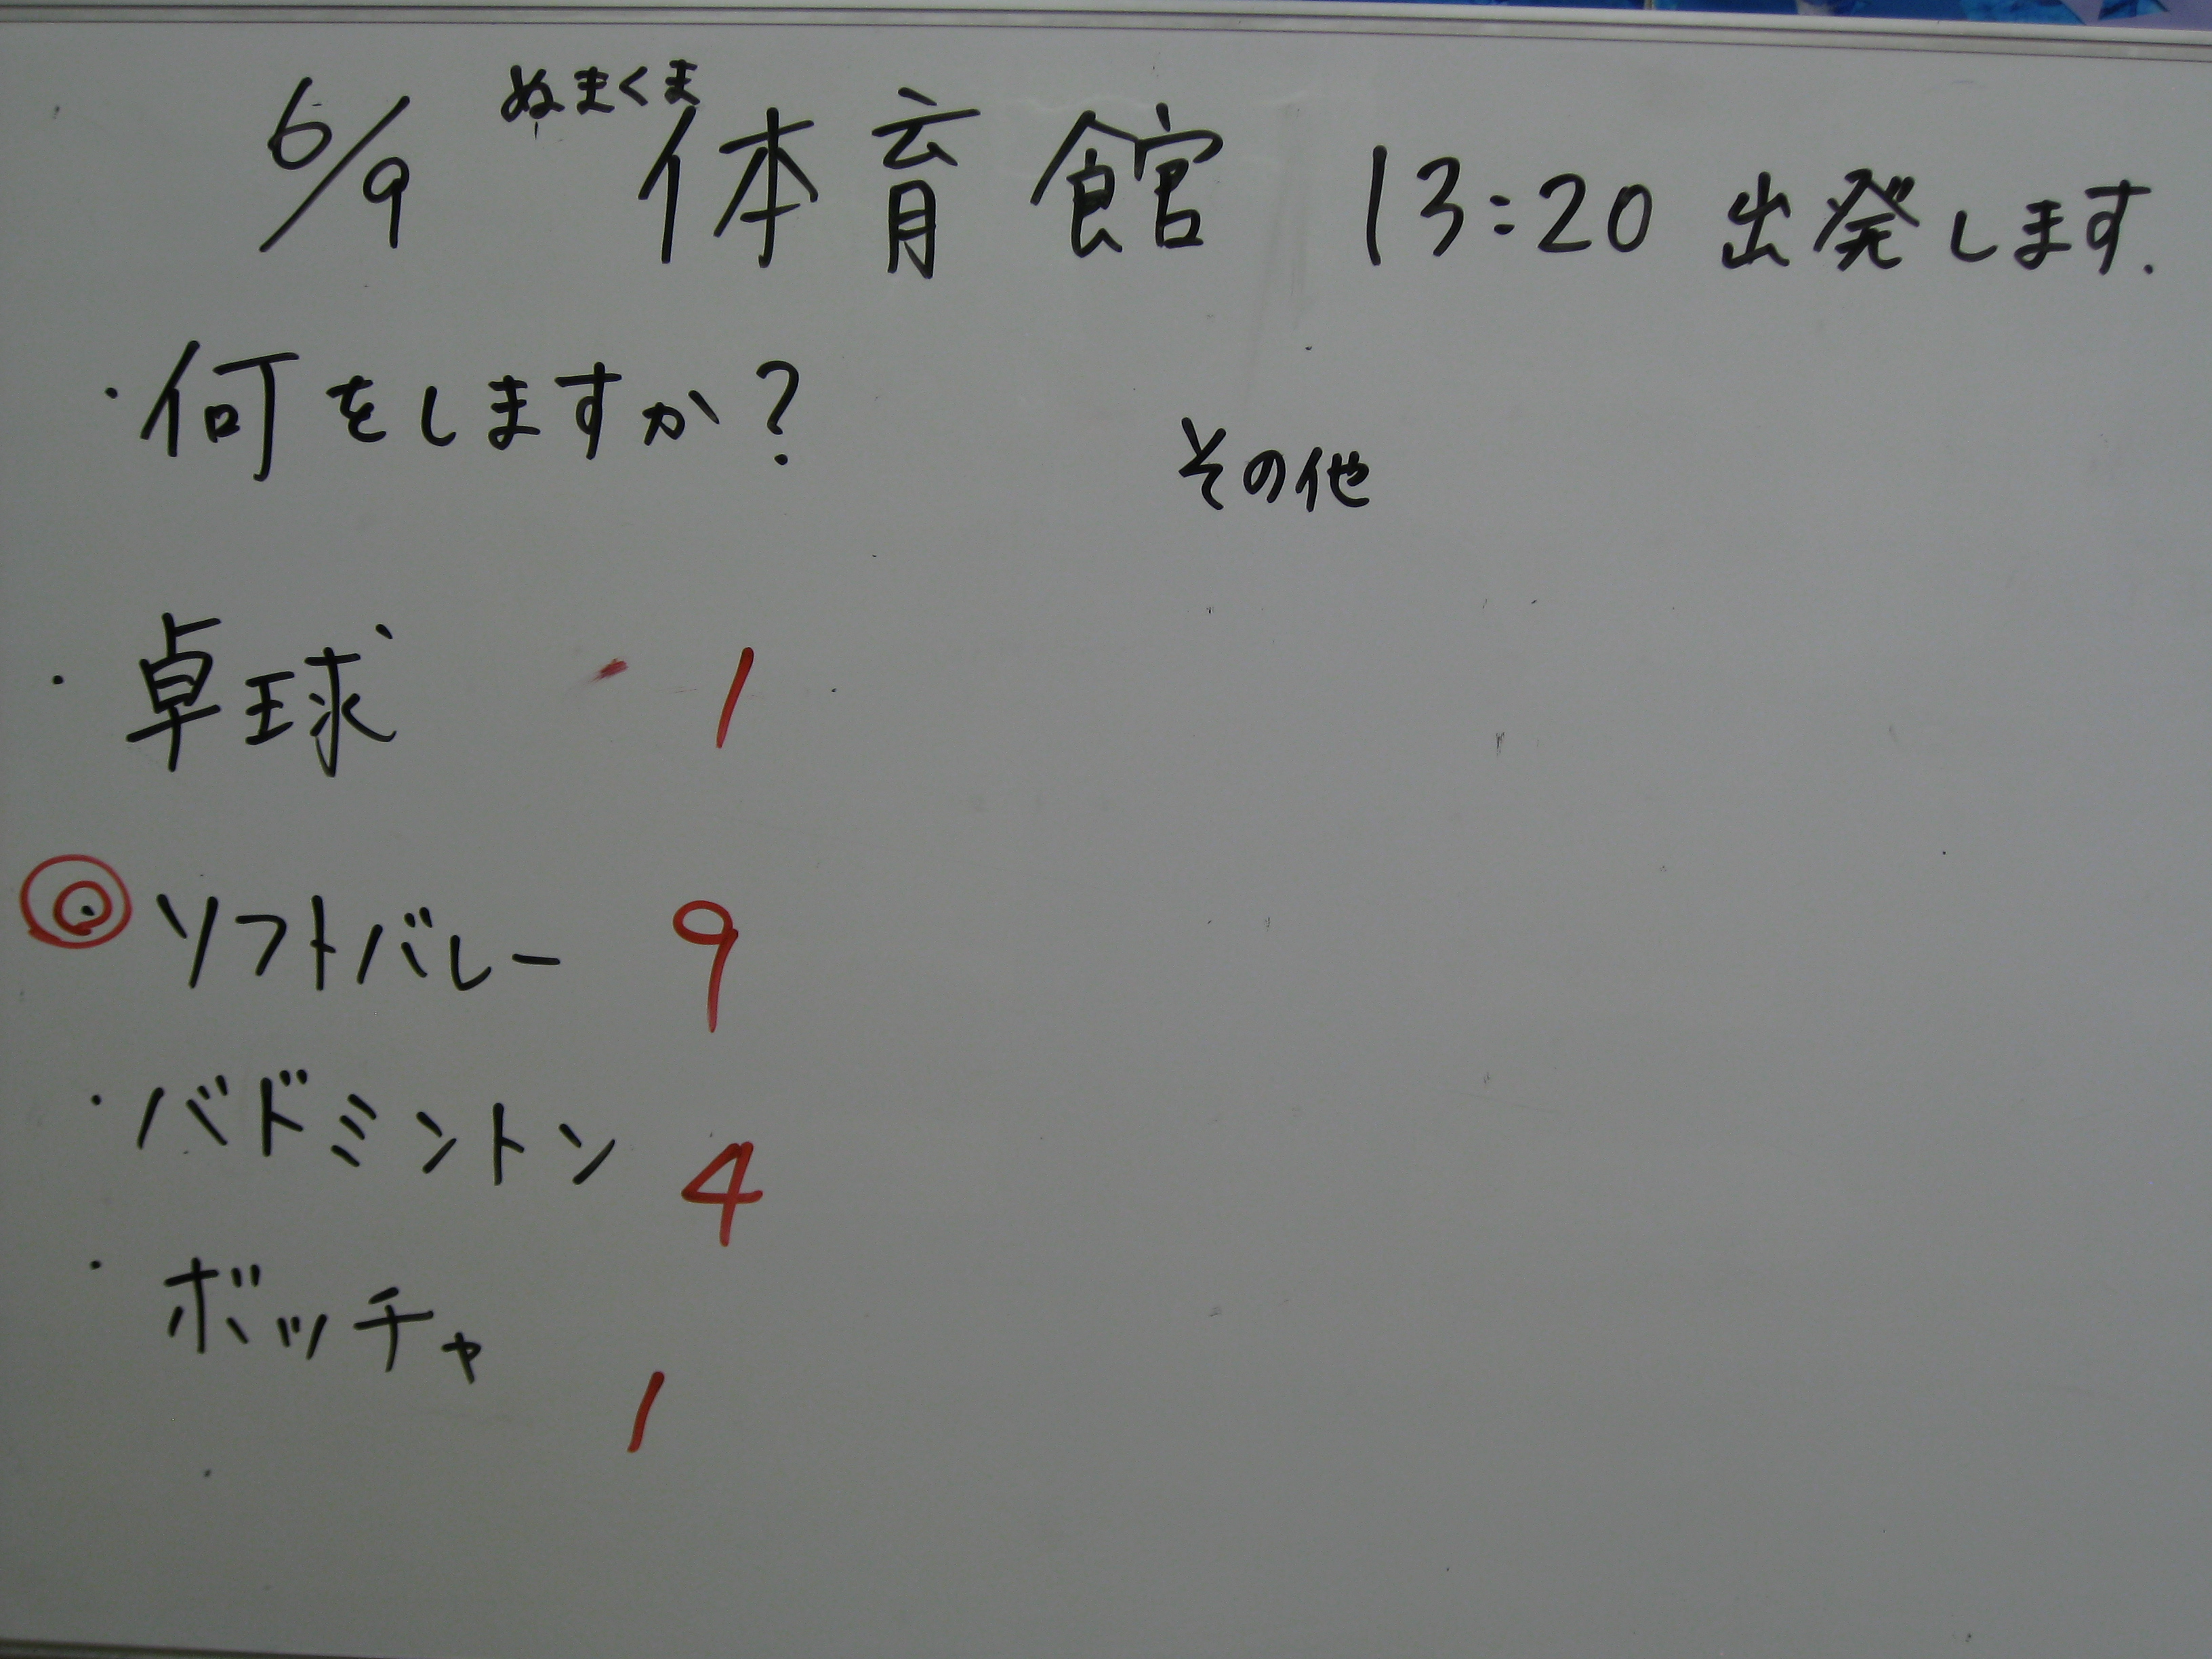 ぬまくま
6/9 体育館 13:20 出発します.
・何をしますか?
その他
・卓球 1
◎ソフトバレー 9
・バドミントン 4
・ボッチャ 1